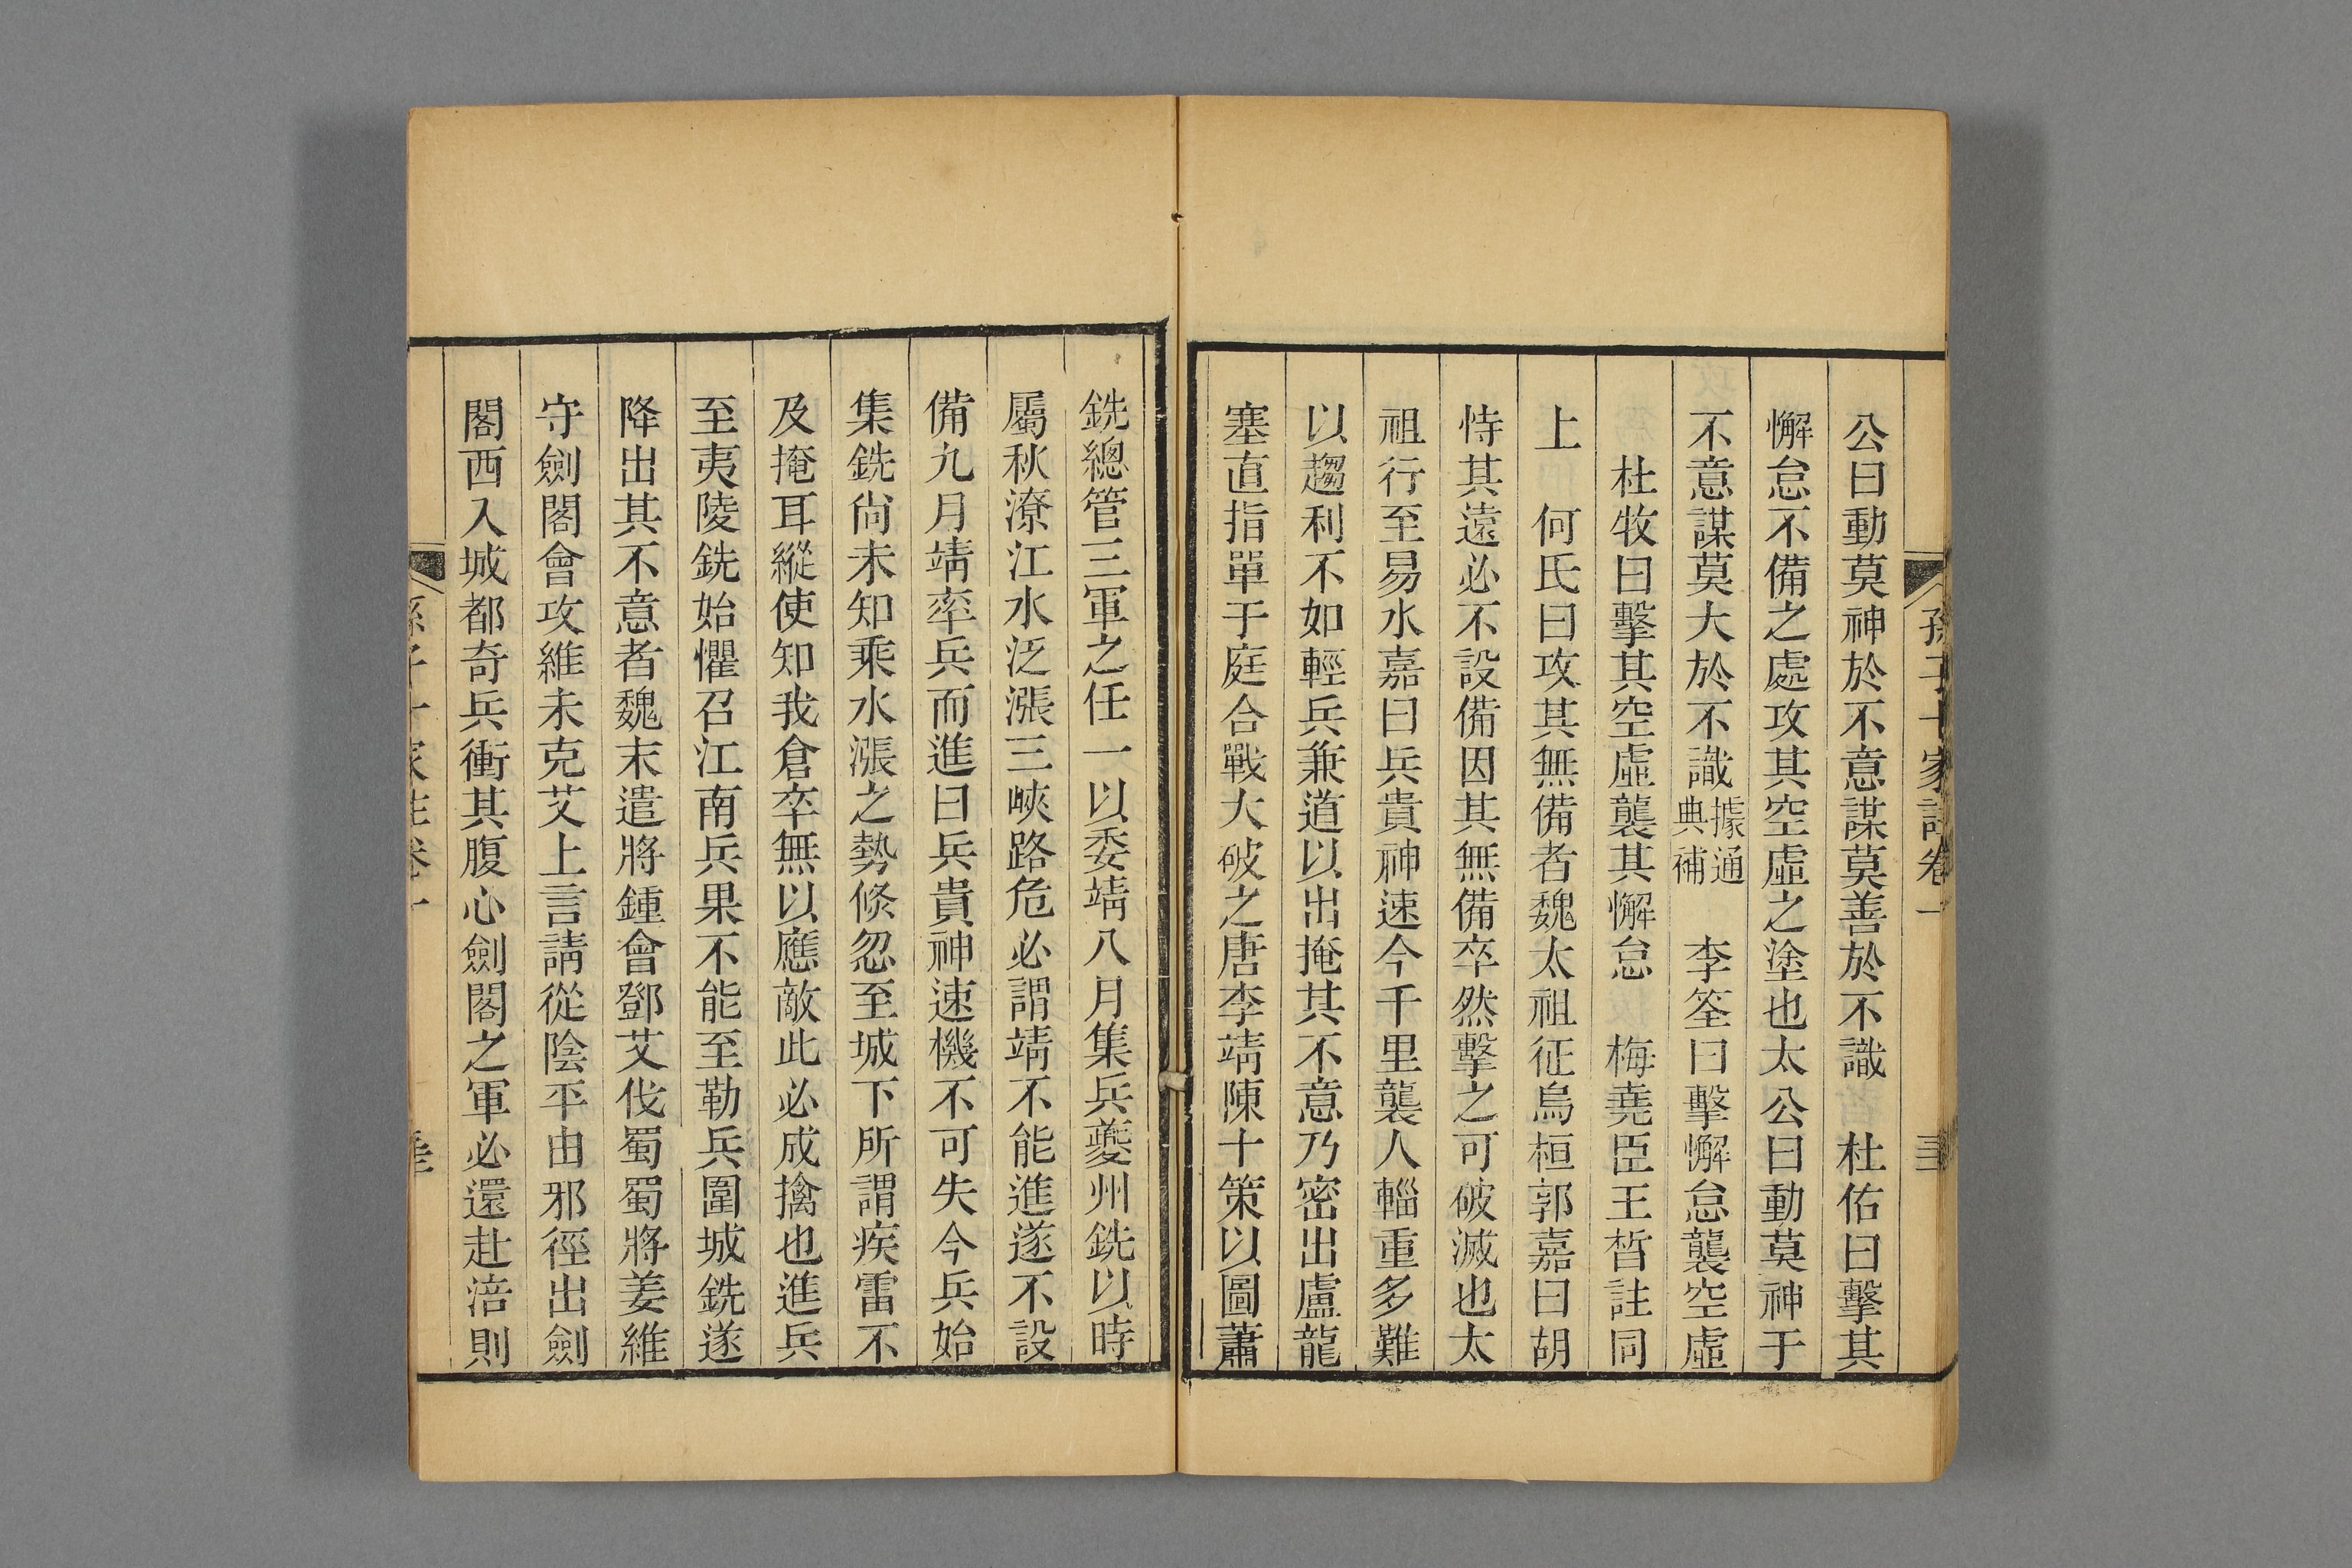 公曰動莫神於不意謀莫善於不識　杜佑曰擊其
懈怠不備之處攻其空虛之塗也太公曰動莫神于
不意謀莫大於不識據通典補　李筌曰擊懈怠襲空虛
杜牧曰擊其空虛襲其懈怠　梅堯臣王晳註同
上　何氏曰攻其無備者魏太祖征烏桓郭嘉曰胡
恃其遠必不設備因其無備卒然擊之可破滅也太
祖行至易水嘉曰兵貴神速今千里襲人輜重多難
以趨利不如輕兵兼道以出掩其不意乃密出盧龍
塞直指單于庭合戰大破之唐李靖陳十策以圖蕭
銑總管三軍之任一以委靖八月集兵夔州銑以時
屬秋潦江水泛漲三峽路危必謂靖不能進遂不設
備九月靖率兵而進曰兵貴神速機不可失今兵始
集銑尚未知乘水漲之勢倐忽至城下所謂疾雷不
及掩耳縱使知我倉卒無以應敵此必成擒也進兵
至夷陵銑始懼召江南兵果不能至勒兵圍城銑遂
降出其不意者魏末遣將鍾會鄧艾伐蜀蜀將姜維
守劍閣會攻維未克艾上言請從陰平由邪徑出劍
閣西入成都奇兵衝其腹心劍閣之軍必還赴涪則
孫子十家註卷一